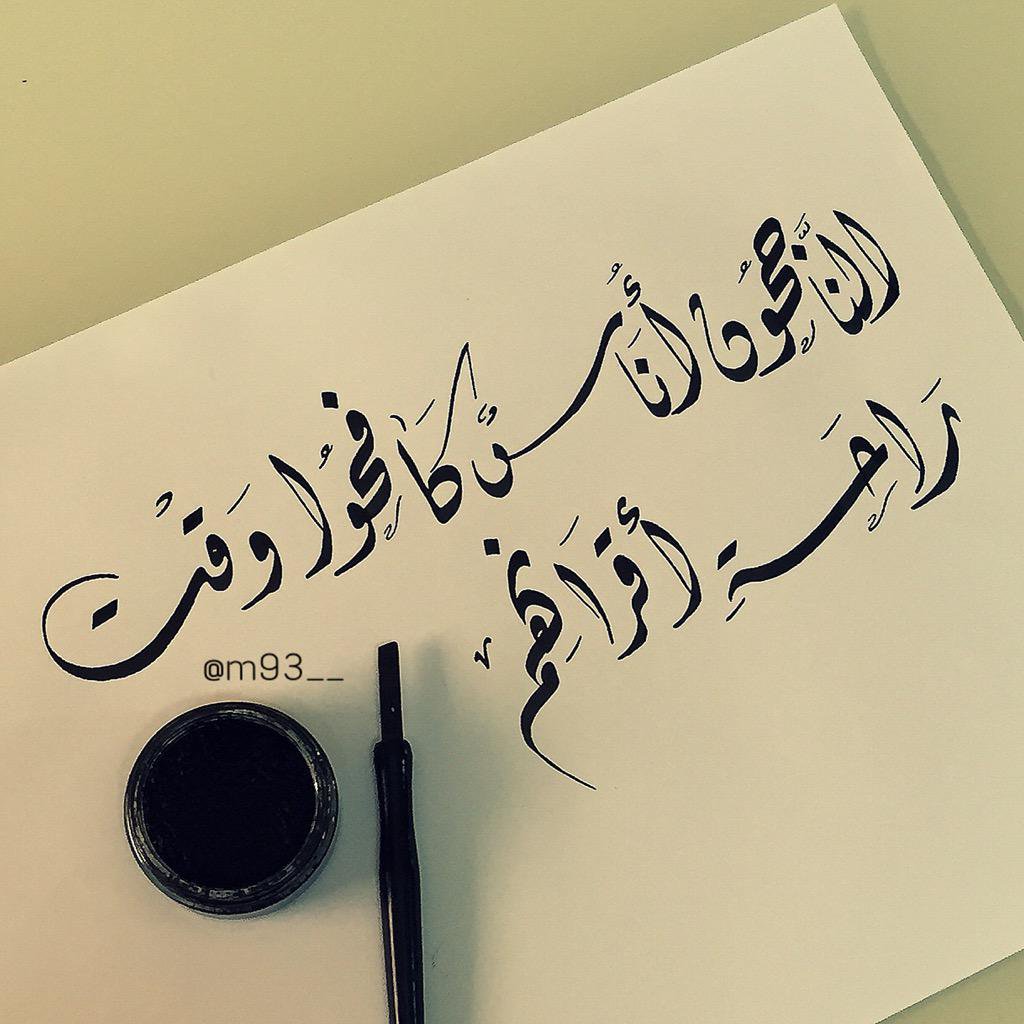 النَّاجِحُونَ أُنَاسٌ كَافَحُوا وَقْتَ
رَاحَةِ أَقْرَانِهِمْ
@m93__